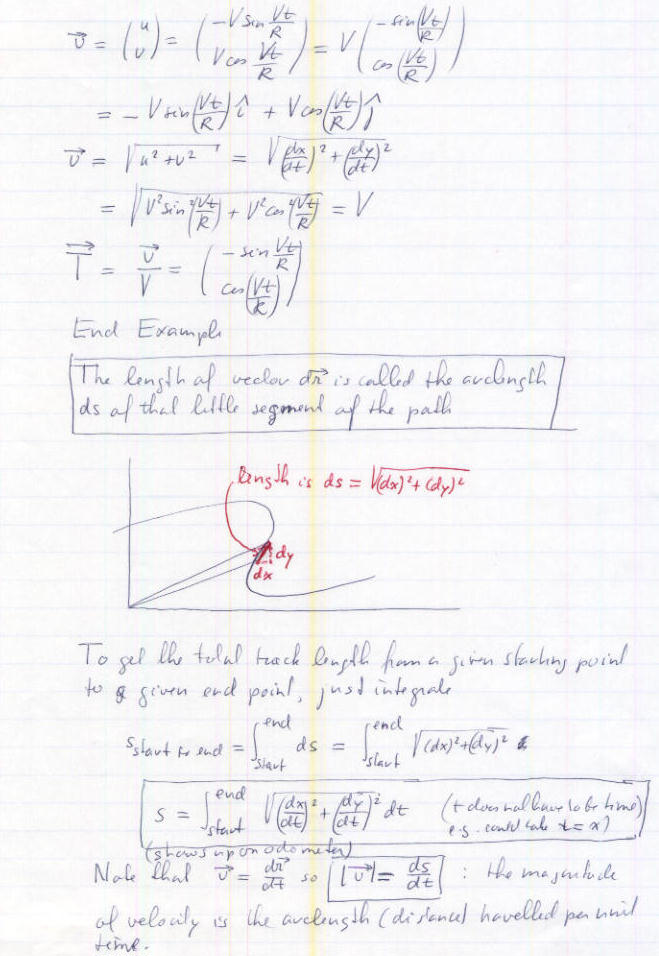 $\vec{v} = \begin{pmatrix} u \\ v \end{pmatrix} = \begin{pmatrix} -V \sin \frac{Vt}{R} \\ V \cos \frac{Vt}{R} \end{pmatrix} = V \begin{pmatrix} -\sin \left(\frac{Vt}{R}\right) \\ \cos \left(\frac{Vt}{R}\right) \end{pmatrix}$
$= -V \sin \left(\frac{Vt}{R}\right) \hat{i} + V \cos \left(\frac{Vt}{R}\right) \hat{j}$
$\vec{v} = \sqrt{u^2 + v^2} = \sqrt{\left(\frac{dx}{dt}\right)^2 + \left(\frac{dy}{dt}\right)^2}$
$= \sqrt{V^2 \sin^2 \left(\frac{Vt}{R}\right) + V^2 \cos^2 \left(\frac{Vt}{R}\right)} = V$
$\vec{T} = \frac{\vec{v}}{V} = \begin{pmatrix} -\sin \frac{Vt}{R} \\ \cos \left(\frac{Vt}{R}\right) \end{pmatrix}$
End Example
The length of vector $d\vec{r}$ is called the arclength
ds of that little segment of the path
length is ds = $\sqrt{(dx)^2 + (dy)^2}$
dy
dx
To get the total track length from a given starting point
to a given end point, just integrate
$s_{\text{start to end}} = \int_{\text{start}}^{\text{end}} ds = \int_{\text{start}}^{\text{end}} \sqrt{(dx)^2 + (dy)^2}$
$s = \int_{\text{start}}^{\text{end}} \sqrt{\left(\frac{dx}{dt}\right)^2 + \left(\frac{dy}{dt}\right)^2} dt$ (t does not have to be time)
e.g. could take t = x)
(shows up on odometer)
Note that $\vec{v} = \frac{d\vec{r}}{dt}$ so $|\vec{v}| = \frac{ds}{dt}$ : the magnitude
of velocity is the arclength (distance) travelled per unit
time.